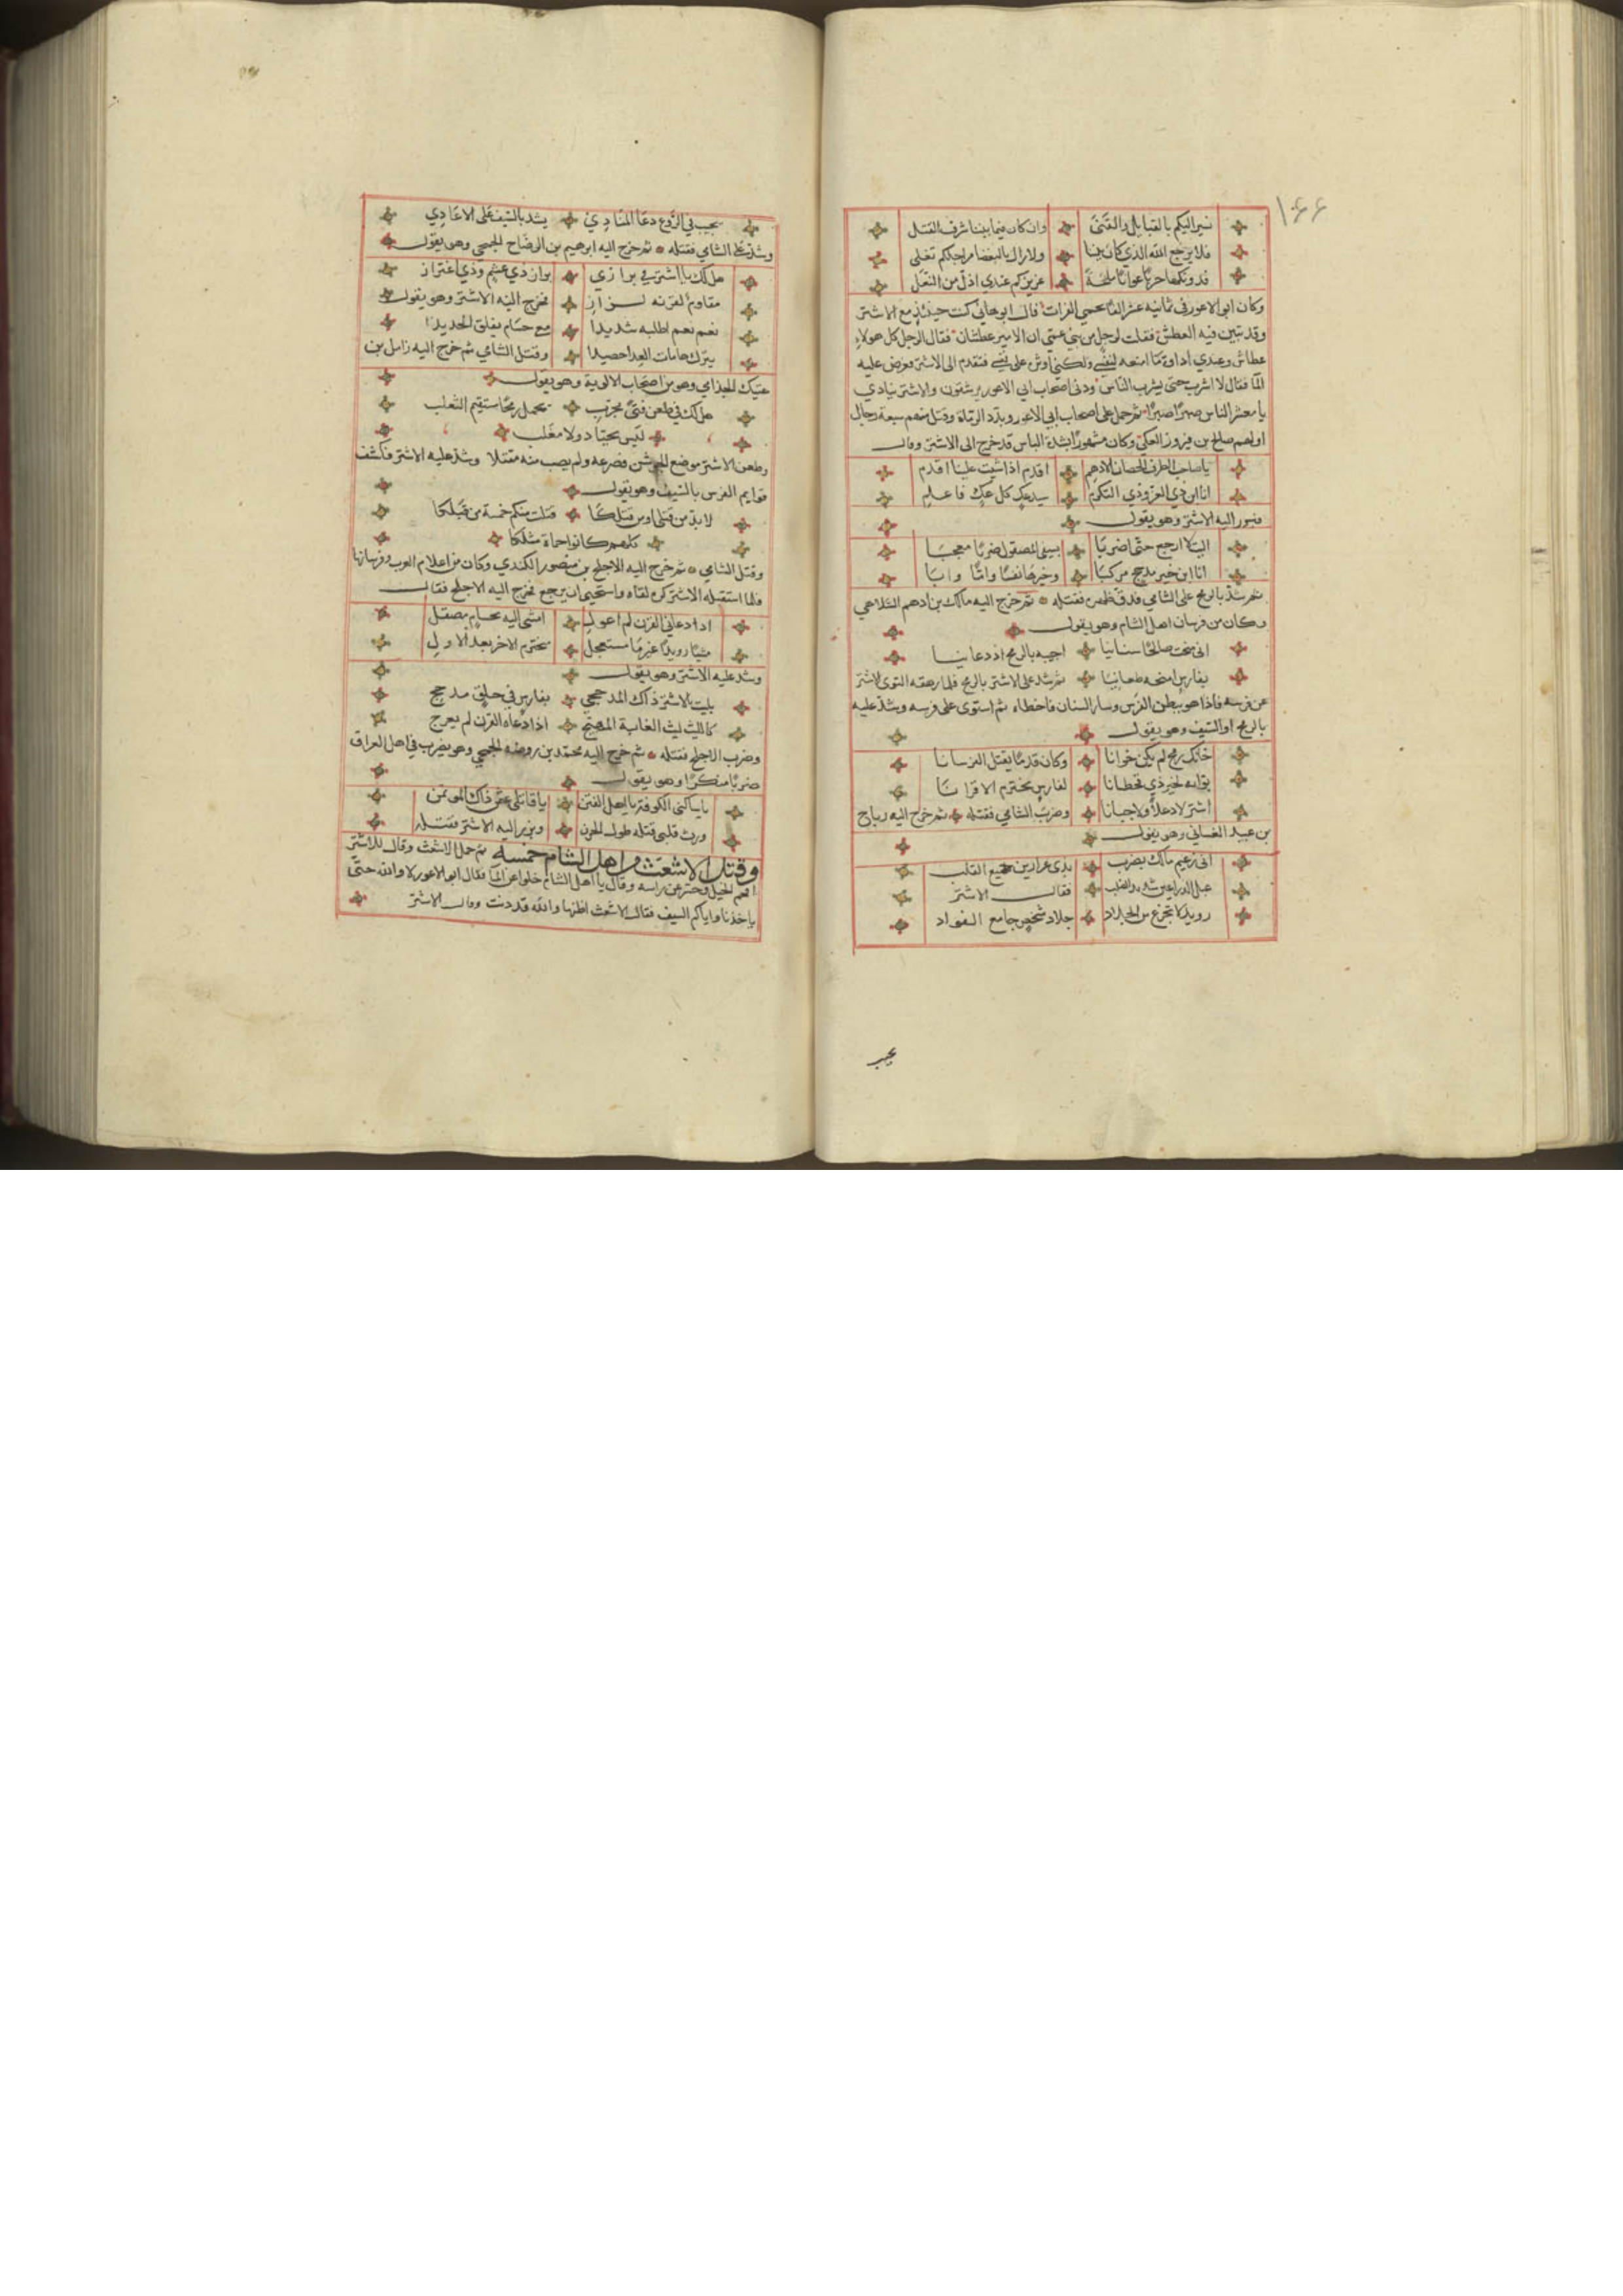 ١٤٤
نسير اليكم بالقبايل والقنى وان كان فيما بيننا شرف القتل
فلا يرجع الله الذي كان بيننا ولا زال بالبغضا مراجلكم تغلى
فدونكها حربا عوانا ملحة عزيزكم عندي اذل من النعل
وكان ابو الاعور في ثمانيه عشر الفا يحمى الفرات قال ابو هاني كنت حينئذ مع الاشتر
وقد تبين فيه العطش فقلت لرجل من بني عمى ان الامير عطشان فقال الرجل كل هولاء
عطاش وعندي اداوة ما امنعه لنفسي ولكني اوثر على نفسي فتقدم الى الاشتر فعرض عليه
الما فقال لا اشرب حتى يشرب الناس ودنى اصحاب ابي الاعور يرشقون والاشتر ينادي
يا معشر الناس صبرا صبرا ثم حمل على اصحاب ابي الاعور وبدد الرماة وقتل منهم سبعة رجال
اولهم صالح بن فيروز العكي وكان مشهورا بشدة الباس قد خرج الى الاشتر وقال
يا صاحب الطرف الحصان الادهم اقدم اذا شيت علينا اقدم
انا ابن ذي العز وذي التكرم سيد عك كل عك فاعلم
فبرز اليه الاشتر وهو يقول
اليت لا ارجع حتى اضربا بسيفي المصقول ضربا معجبا
انا ابن خير مدحج مركبا وخيرها نفسا واما وابا
ثم شد بالرمح على الشامي فدق ظهره فقتله ثم خرج اليه مالك بن ادهم السلاماني
وكان من فرسان اهل الشام وهو يقول
اني منحت صالحا سنانيا اجيبه بالرمح اذ دعانيا
بفارس امنحه طعانيا ثم شد على الاشتر بالرمح فلما رهقه التوى الاشتر
عن فرسه فاذا هو ببطن الفرس وسار السنان فاخطاه ثم استوى على فرسه وشد عليه
بالرمح او السيف وهو يقول
خانك رمح لم يكن خوانا وكان قدما يقتل الفرسانا
بواته لخير ذي قحطانا لفارس يخترم الاقرانا
اشتر لا وعلا ولا جبانا وضرب الشامي فقتله ثم خرج اليه رياح
بن عبيد الغساني وهو يقول
اني زعيم مالك بضرب بذي غرارين جميع القلب
عبل الذراعين شديد الصلب فقال الاشتر
رويدك لا تجزع من الجلاد جلاد شخص جامع الفواد
يجيب
يجيب في الروع دعا المنادي يشد بالسيف على الاعادي
وشد على الشامي فقتله ثم خرج اليه ابرهيم بن الوضاح الجمحي وهو يقول
هل لك يا اشتر في برازي براز ذي غشم وذي اعتزاز
مقاوم لقرنه لزاز فخرج اليه الاشتر وهو يقول
نعم نعم اطلبه شديدا مع حسام يفلق الحديدا
يترك هامات العدا حصيدا وقتل الشامي ثم خرج اليه زامل بن
عتيك الجذامي وهو من اصحاب الالوية وهو يقول
هل لك في طعن فتى مجرب يحمل رمحا مستقيم الثعلب
ليس بحياد ولا مغلب
وطعن الاشتر موضع الجوشن فصرعه ولم يصب منه مقتلا وشد عليه الاشتر فكشف
قوايم الفرس بالسيف وهو يقول
لا بد من قتلى او من قتلكا قتلت منكم خمسة من قبلكا
كلهم كانوا حماة مثلكا
وقتل الشامي ثم خرج اليه الاجلح بن منصور الكندي وكان من اعلام العرب وفرسانها
فلما استقبله الاشتر كره لقاه واستحيى ان يرجع فخرج اليه الاجلح فقال
اذا دعاني القرن لم اعول امشى اليه بحسام مصقل
مشيا رويدا غير ما مستعجل يخترم الاخر بعد الاول
وشد عليه الاشتر وهو يقول
بليت بالاشتر ذاك المدحجي بفارس في حلق مدجج
كالليث ليث الغابة المهيج اذا دعاه القرن لم يعرج
وضرب الاجلح فقتله ثم خرج اليه محمد بن روضه الجمحي وهو يضرب في اهل العراق
ضربا منكرا وهو يقول
يا ساكنى الكوفة يا اهل الفتن يا قاتلى عثمن ذاك الموتمن
ورث قلبى قتله طول الحزن وبرز اليه الاشتر فقتله
وقتل الاشعث من اهل الشام خمسه ثم حمل الاشعث وقال للاشتر
اقحم الخيل وحسر عن راسه وقال يا اهل الشام خلوا عن الما فقال ابو الاعور لا والله حتى
ياخذنا واياكم السيف فقال الاشعث اظنها والله قد دنت وقال الاشتر